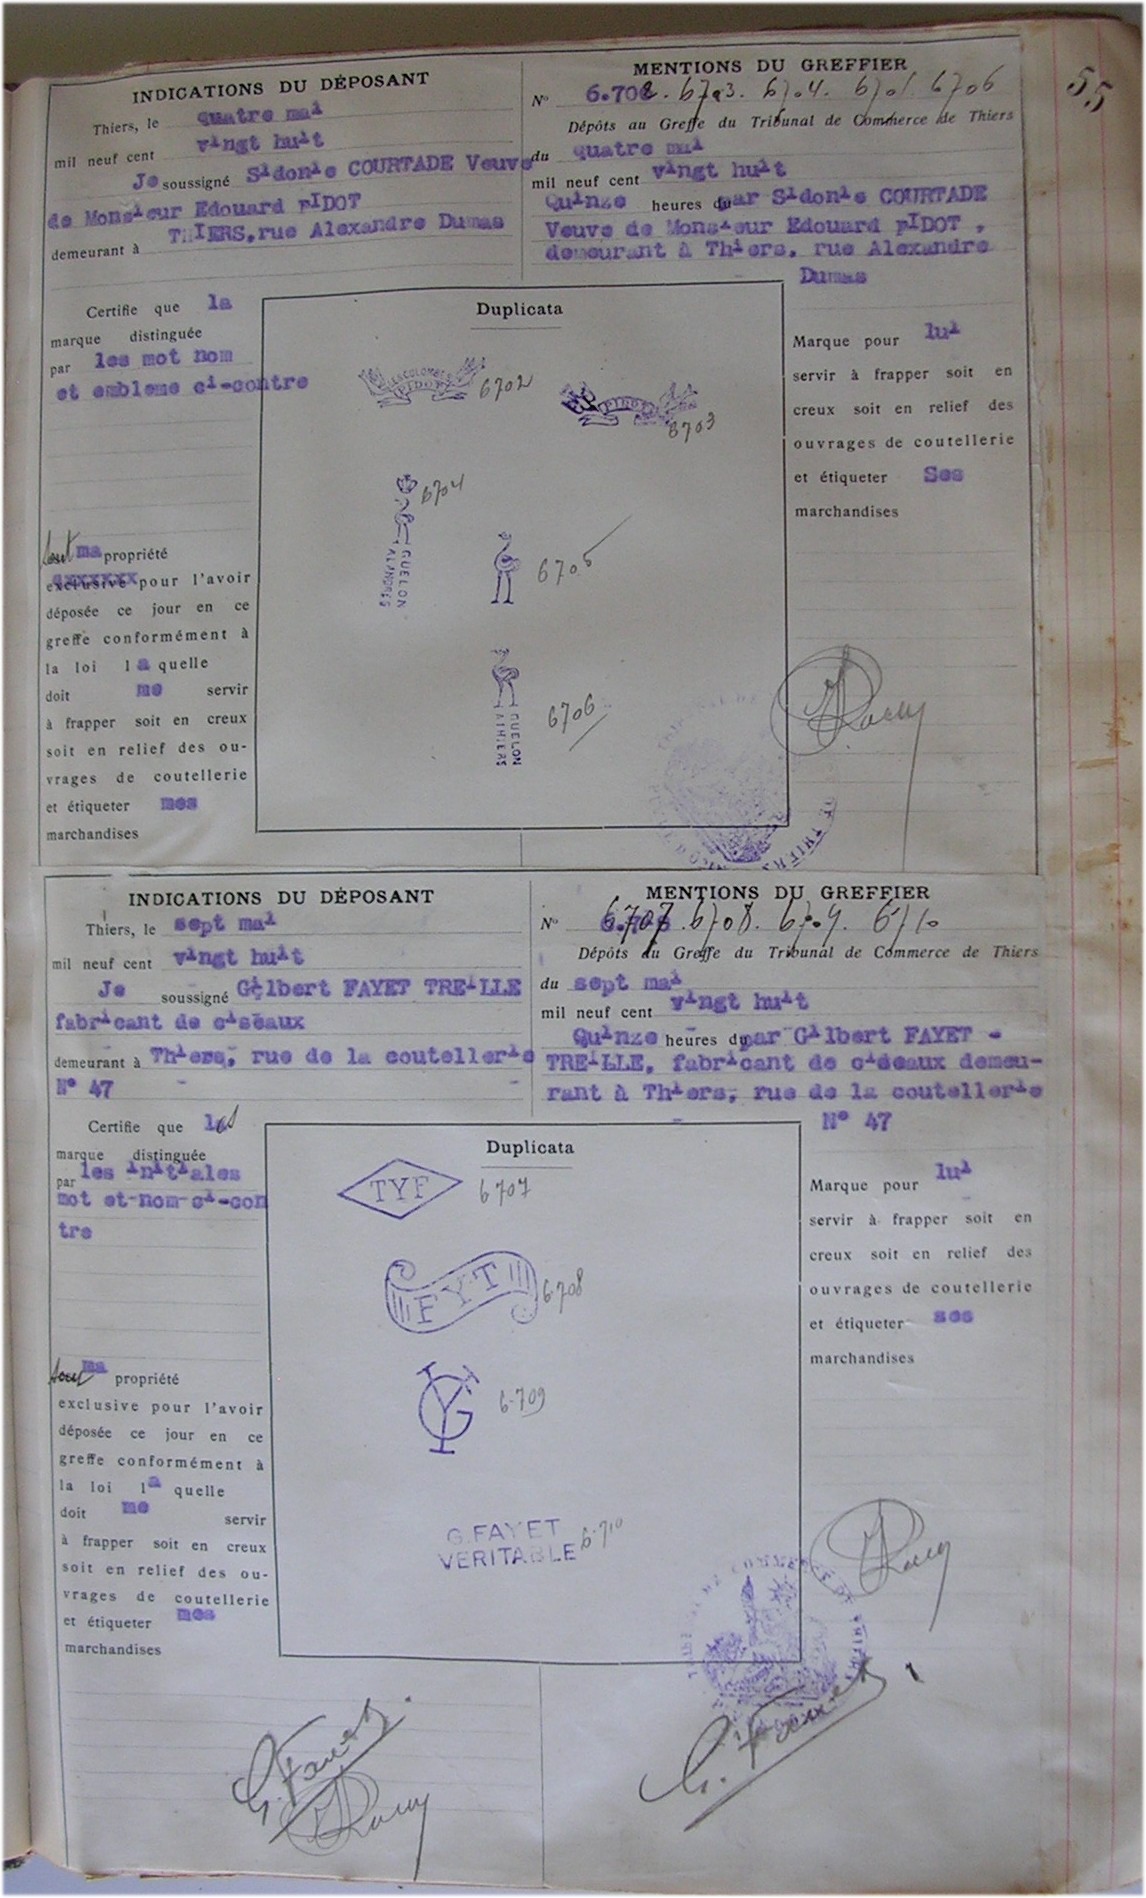 55
INDICATIONS DU DÉPOSANT
Thiers, le quatre mai
mil neuf cent vingt huit
Je soussigné Sidonie COURTADE Veuve
de Monsieur Edouard PIDOT
demeurant à THIERS, rue Alexandre Dumas
MENTIONS DU GREFFIER
No 6.702. 6703. 6704. 6706
Dépôts au Greffe du Tribunal de Commerce de Thiers
du quatre mai
mil neuf cent vingt huit
Quinze heures par Sidonie COURTADE
Veuve de Monsieur Edouard PIDOT ,
demeurant à Thiers, rue Alexandre
Dumas
Certifie que la
marque distinguée
par les mot nom
et embleme ci-contre
ma propriété
exclusive pour l'avoir
déposée ce jour en ce
greffe conformément à
la loi la quelle
doit me servir
à frapper soit en creux
soit en relief des ou-
vrages de coutellerie
et étiqueter mes
marchandises
Duplicata
LA COLOMBE
PIDOT
6702
PIDOT
6703
6704
GUELON
6705
6706
GUELON
ATHIERS
Marque pour lui
servir à frapper soit en
creux soit en relief des
ouvrages de coutellerie
et étiqueter Ses
marchandises
INDICATIONS DU DÉPOSANT
Thiers, le sept mai
mil neuf cent vingt huit
Je soussigné Gilbert FAYET TREILLE
fabricant de ciseaux
demeurant à Thiers, rue de la coutellerie
N° 47
MENTIONS DU GREFFIER
No 6707. 6708. 6709. 6710
Dépôts au Greffe du Tribunal de Commerce de Thiers
du sept mai
mil neuf cent vingt huit
Quinze heures par Gilbert FAYET -
TREILLE, fabricant de ciseaux demeu-
rant à Thiers, rue de la coutellerie
N° 47
Certifie que les
marque distinguée
par les initiales
mot et-nom-ci-con
tre
ma propriété
exclusive pour l'avoir
déposée ce jour en ce
greffe conformément à
la loi la quelle
doit me servir
à frapper soit en creux
soit en relief des ou-
vrages de coutellerie
et étiqueter mes
marchandises
Duplicata
TYF 6707
FYT 6708
6709
G. FAYET
VERITABLE 6710
Marque pour lui
servir à frapper soit en
creux soit en relief des
ouvrages de coutellerie
et étiqueter ses
marchandises
G. Fayet
G. Fayet